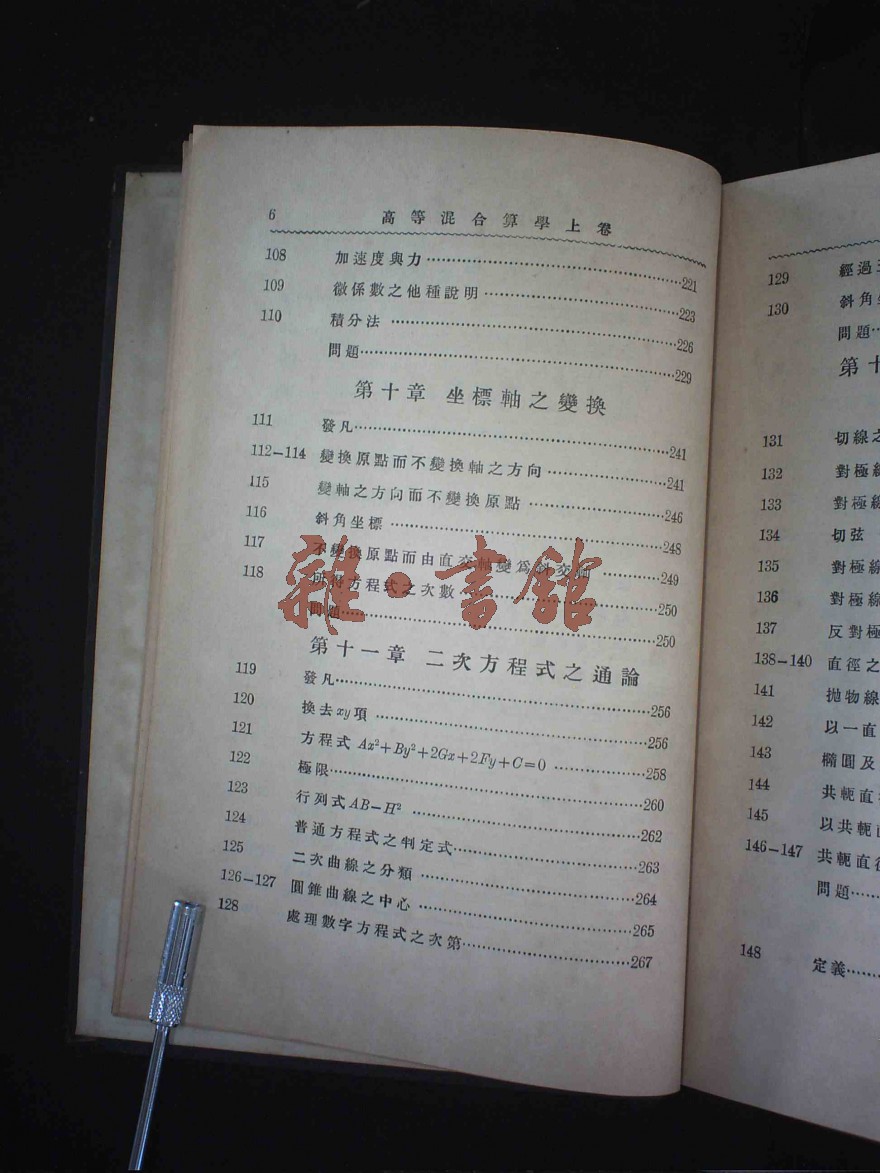 6 高等混合算學上卷
108 加速度與力……221
109 微係數之他種說明……223
110 積分法……226
問題……229
第十章 坐標軸之變換
111 發凡……241
112-114 變換原點而不變換軸之方向……241
115 變軸之方向而不變換原點……246
116 斜角坐標……248
117 不變換原點而由直交軸變爲斜交軸……249
118 所得方程式之次數……250
問題……250
第十一章 二次方程式之通論
119 發凡……256
120 換去xy項……256
121 方程式 Ax²+By²+2Gx+2Fy+C=0……258
122 極限……260
123 行列式AB-H²……262
124 普通方程式之判定式……263
125 二次曲線之分類……264
126-127 圓錐曲線之中心……265
128 處理數字方程式之次第……267
雜·書館
129 經過
130 斜角
問題…
第十
131 切線之
132 對極線
133 對極線
134 切弦
135 對極線
136 對極線
137 反對極
138-140 直徑之
141 拋物線
142 以一直
143 橢圓及
144 共軛直
145 以共軛
146-147 共軛直徑
問題……
148 定義……